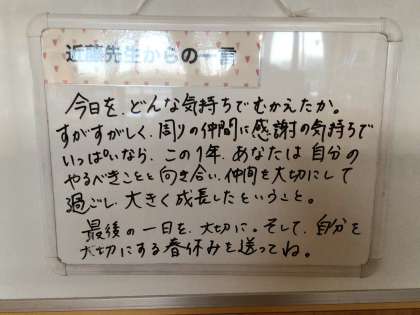 近藤先生からの一言
今日を、どんな気持ちでむかえたか。
すがすがしく、周りの仲間に感謝の気持ちで
いっぱいなら、この1年、あなたは自分の
やるべきことと向き合い、仲間を大切にして
過ごし、大きく成長したということ。
最後の一日を、大切に。そして、自分を
大切にする春休みを送ってね。